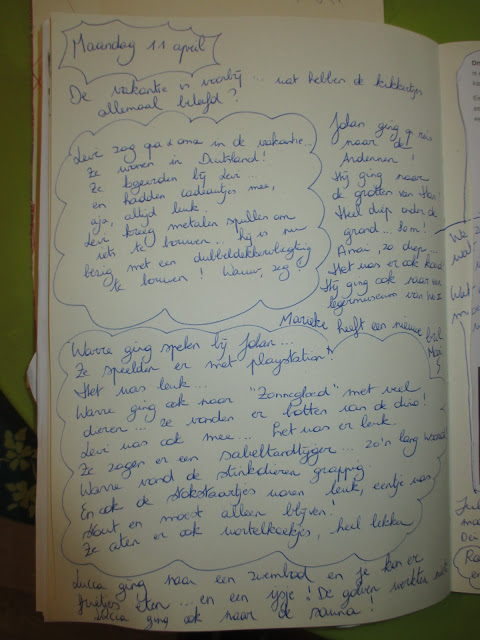 Maandag 11 april
De vakantie is voorbij... wat hebben de kikkertjes
allemaal beleefd?
Levi zag opa & oma in de vakantie...
Ze wonen in Duitsland!
Ze logeerden bij Levi...
en hadden cadeautjes mee,
aja, altijd leuk.
Levi kreeg metalen spullen om
iets te bouwen... hij is nu
bezig met een dubbeldekkervliegtuig
te bouwen! Wauw, zeg!
Jolan ging op reis
naar de
Ardennen!
Hij ging naar
de grotten van Han!
Heel diep onder de
grond... 
Amai, zo diep...
Het was er ook koud
Hij ging ook naar een
legermuseum van w.o. 2
Marieke heeft een nieuwe bril
Warre ging spelen bij Jolan...
Ze speelden er met playstation!
Het was leuk...
Warre ging ook naar "Zonnegloed" met veel
dieren... ze vonden er botten van de dino!
Levi was ook mee... het was er leuk.
Ze zagen er een sabeltandtijger... zo'n lang woord
Warre vond de stinkdieren grappig.
En ook de stokstaartjes waren leuk, eentje was
stout en moest alleen blijven!
Ze aten er ook wortelkoekjes, heel lekker
Lucia ging naar een zwembad en je kan er
frietjes eten... en een ijsje! De golven werkten niet
Lucia ging ook naar de sauna!